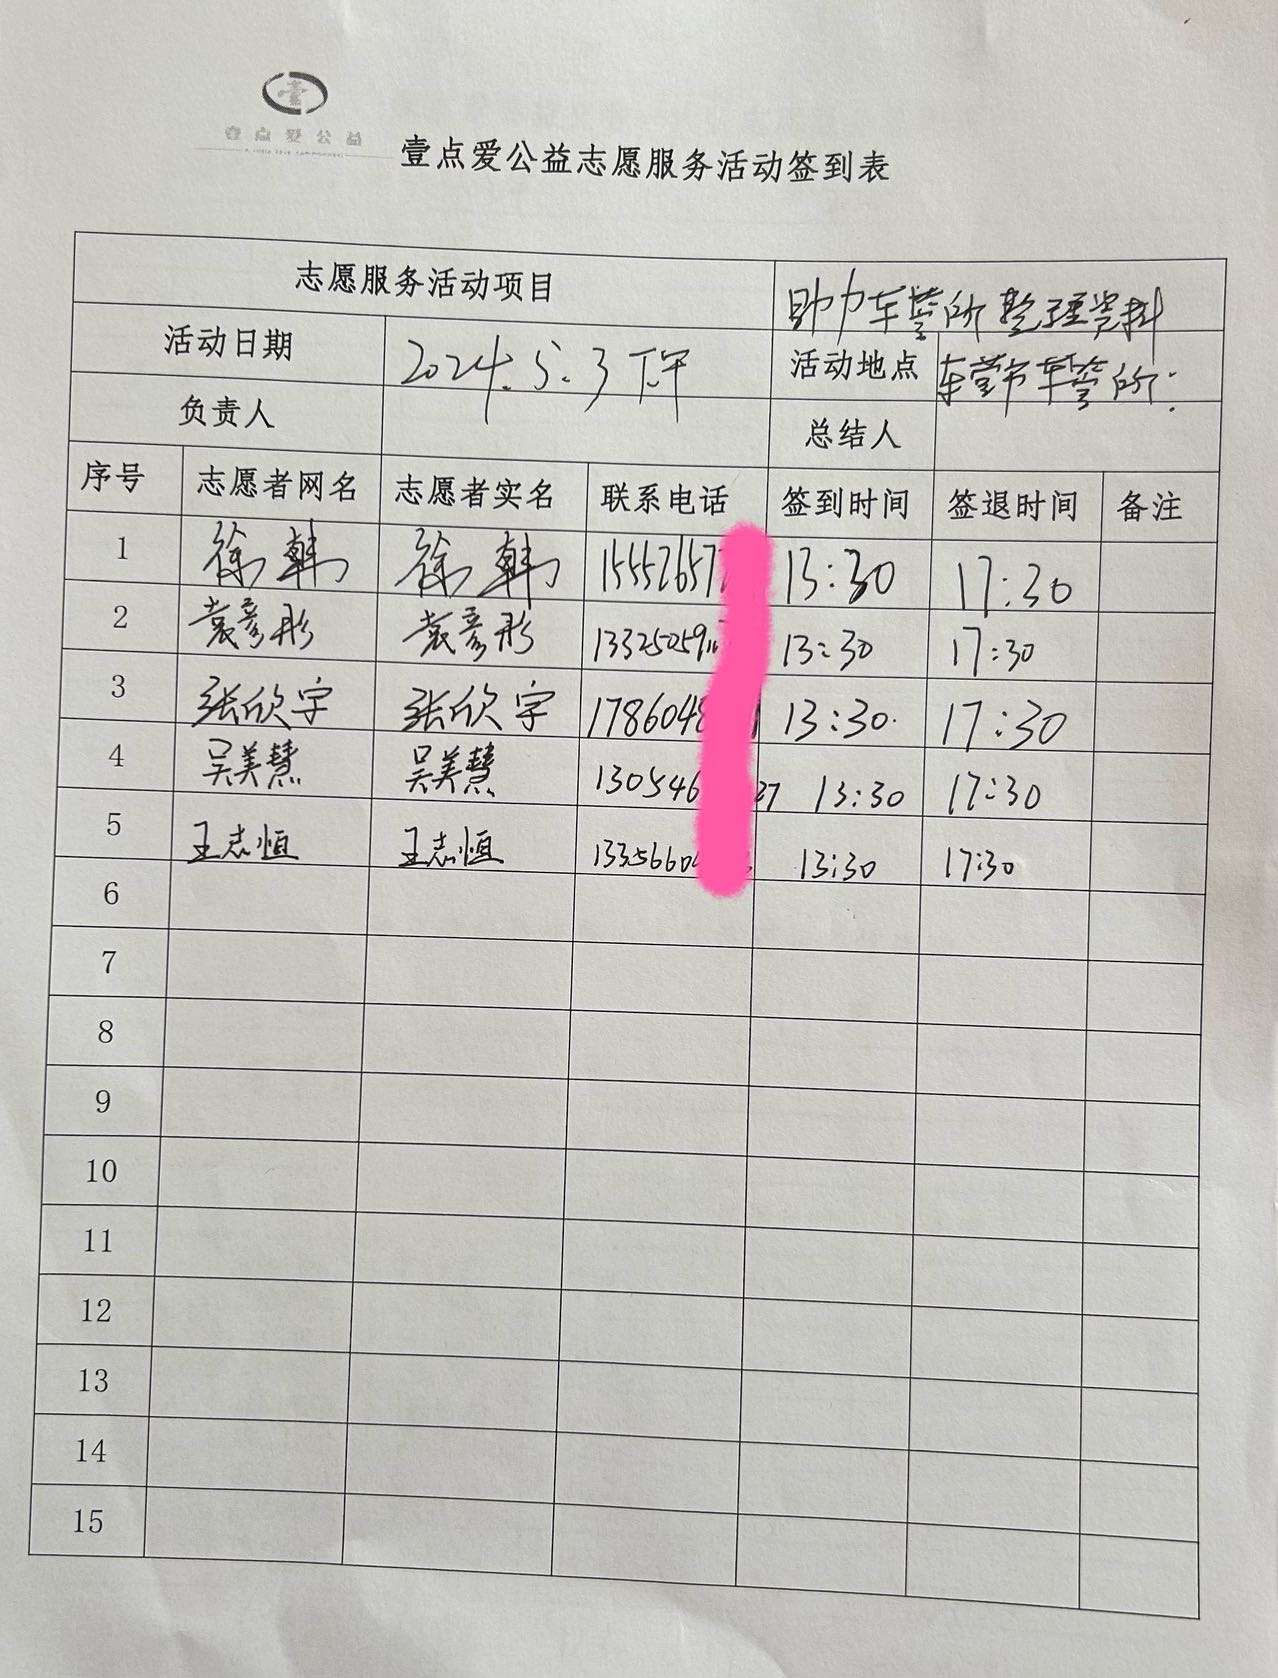 壹
壹点爱公益
壹点爱公益志愿服务活动签到表
志愿服务活动项目 助力车管所整理资料
活动日期 2024.5.3下午 活动地点 东营市车管所
负责人 总结人
序号 志愿者网名 志愿者实名 联系电话 签到时间 签退时间 备注
1 徐韩 徐韩 15552657 13:30 17:30
2 袁彦彤 袁彦彤 133250591 13:30 17:30
3 张欣宇 张欣宇 1786048 13:30 17:30
4 吴美慧 吴美慧 130546 27 13:30 17:30
5 王志恒 王志恒 1335660 13:30 17:30
6
7
8
9
10
11
12
13
14
15